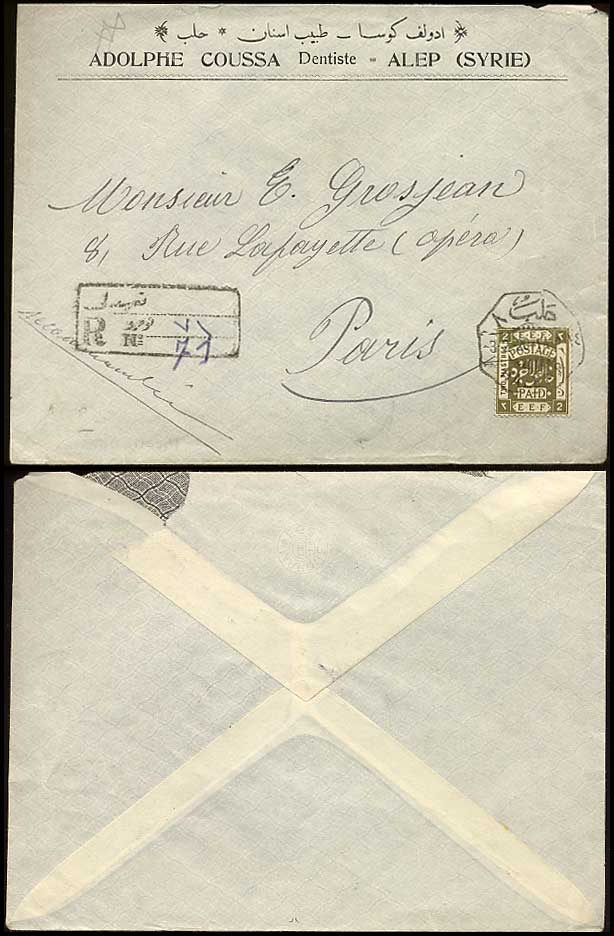 ادولف كوسا ـ طبيب اسنان * حلب
ADOLPHE COUSSA Dentiste = ALEP (SYRIE)
Monsieur E. Grosjean
8, Rue Lafayette (opéra)
Paris
R Nº
حلب
E.E.F.
POSTAGE
PAID
2 E.E.F. 2